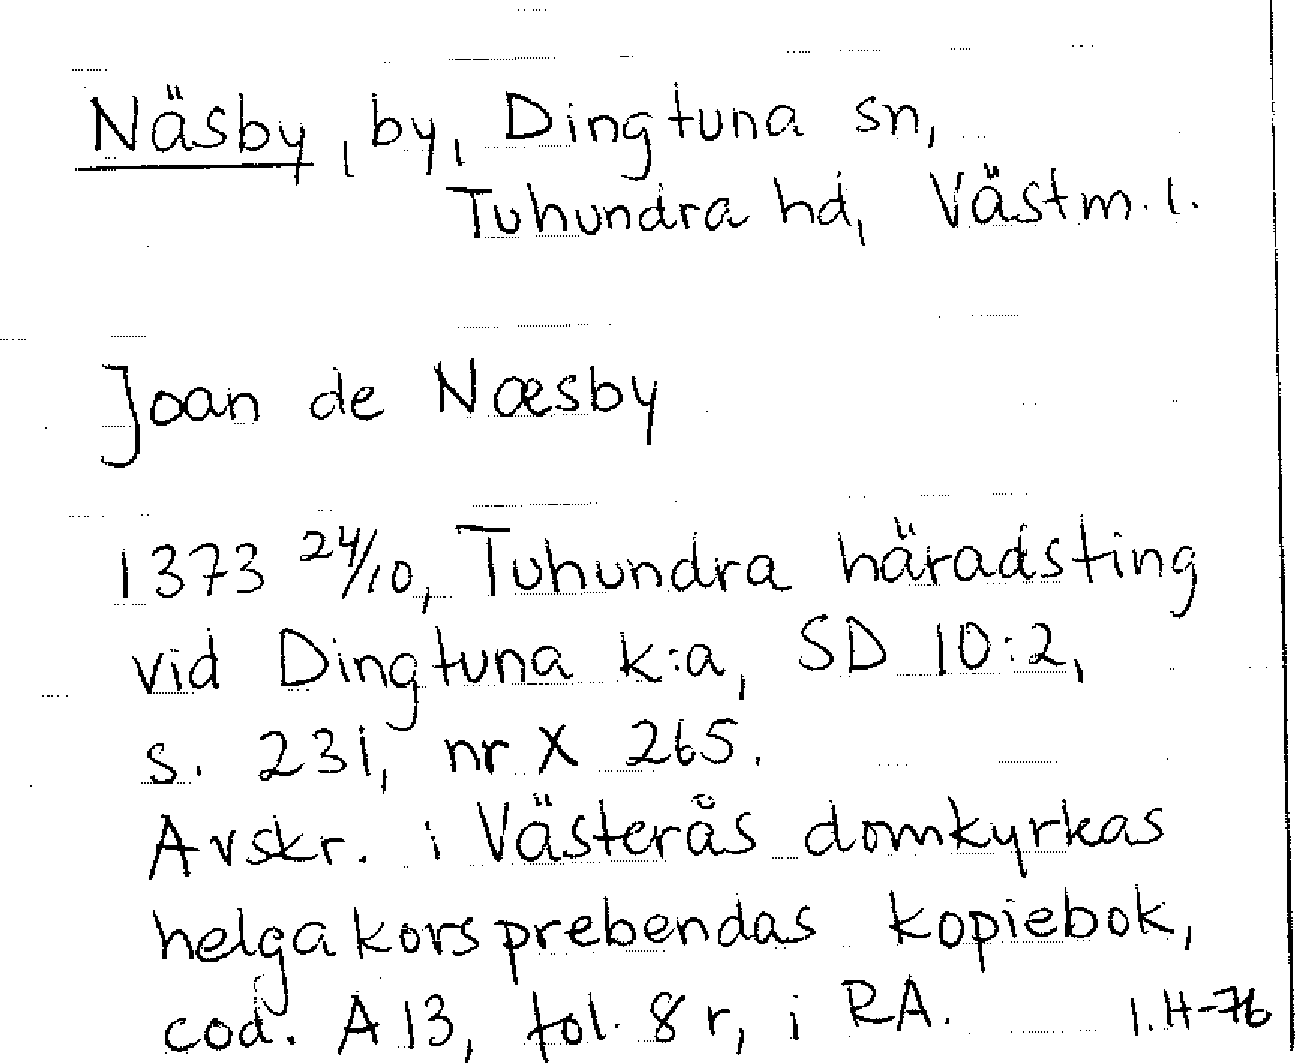 Näsby, by, Dingtuna sn,
Tuhundra hd, Västm. l.
Joan de Næsby
1373 24/10, Tuhundra häradsting
vid Dingtuna k:a, SD 10:2,
s. 231, nr X 265.
Avskr. i Västerås domkyrkas
helgakorsprebendas kopiebok,
cod. A 13, fol. 8 r, i RA. I.H-76